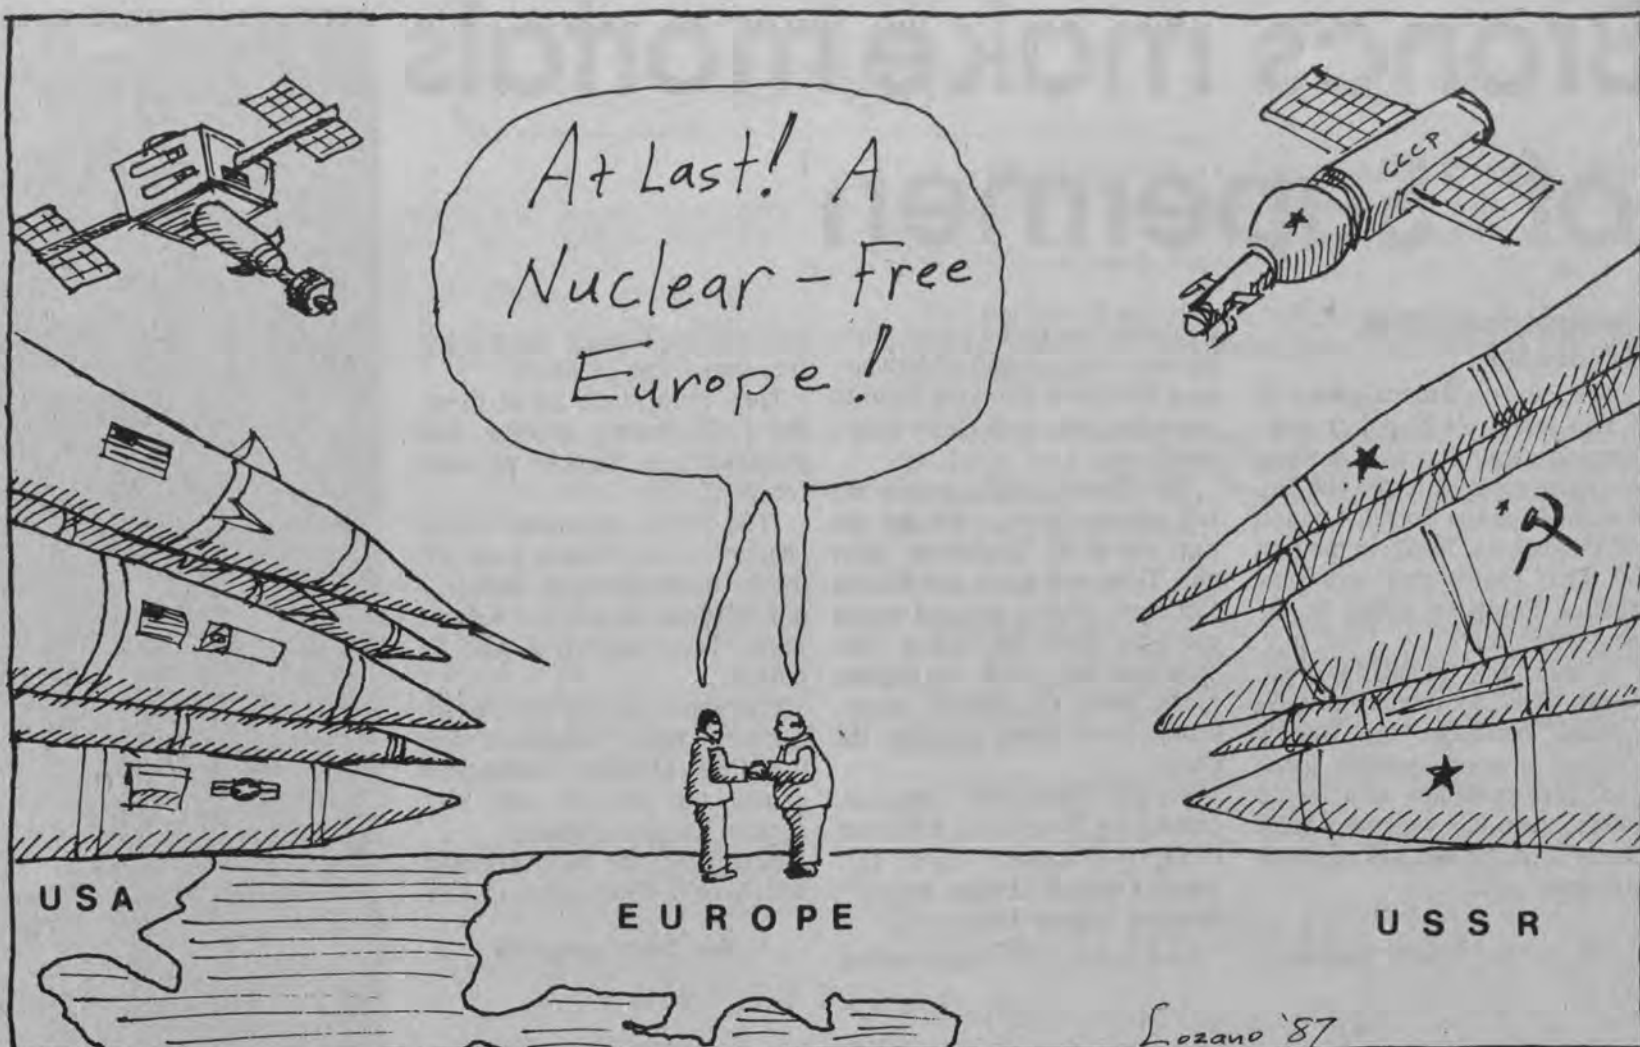 At Last! A
Nuclear-Free
Europe!
CCCP
USA
EUROPE
USSR
Lozano '87